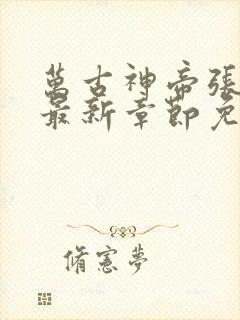 萬古神帝張
最新章節免
脩憲夢